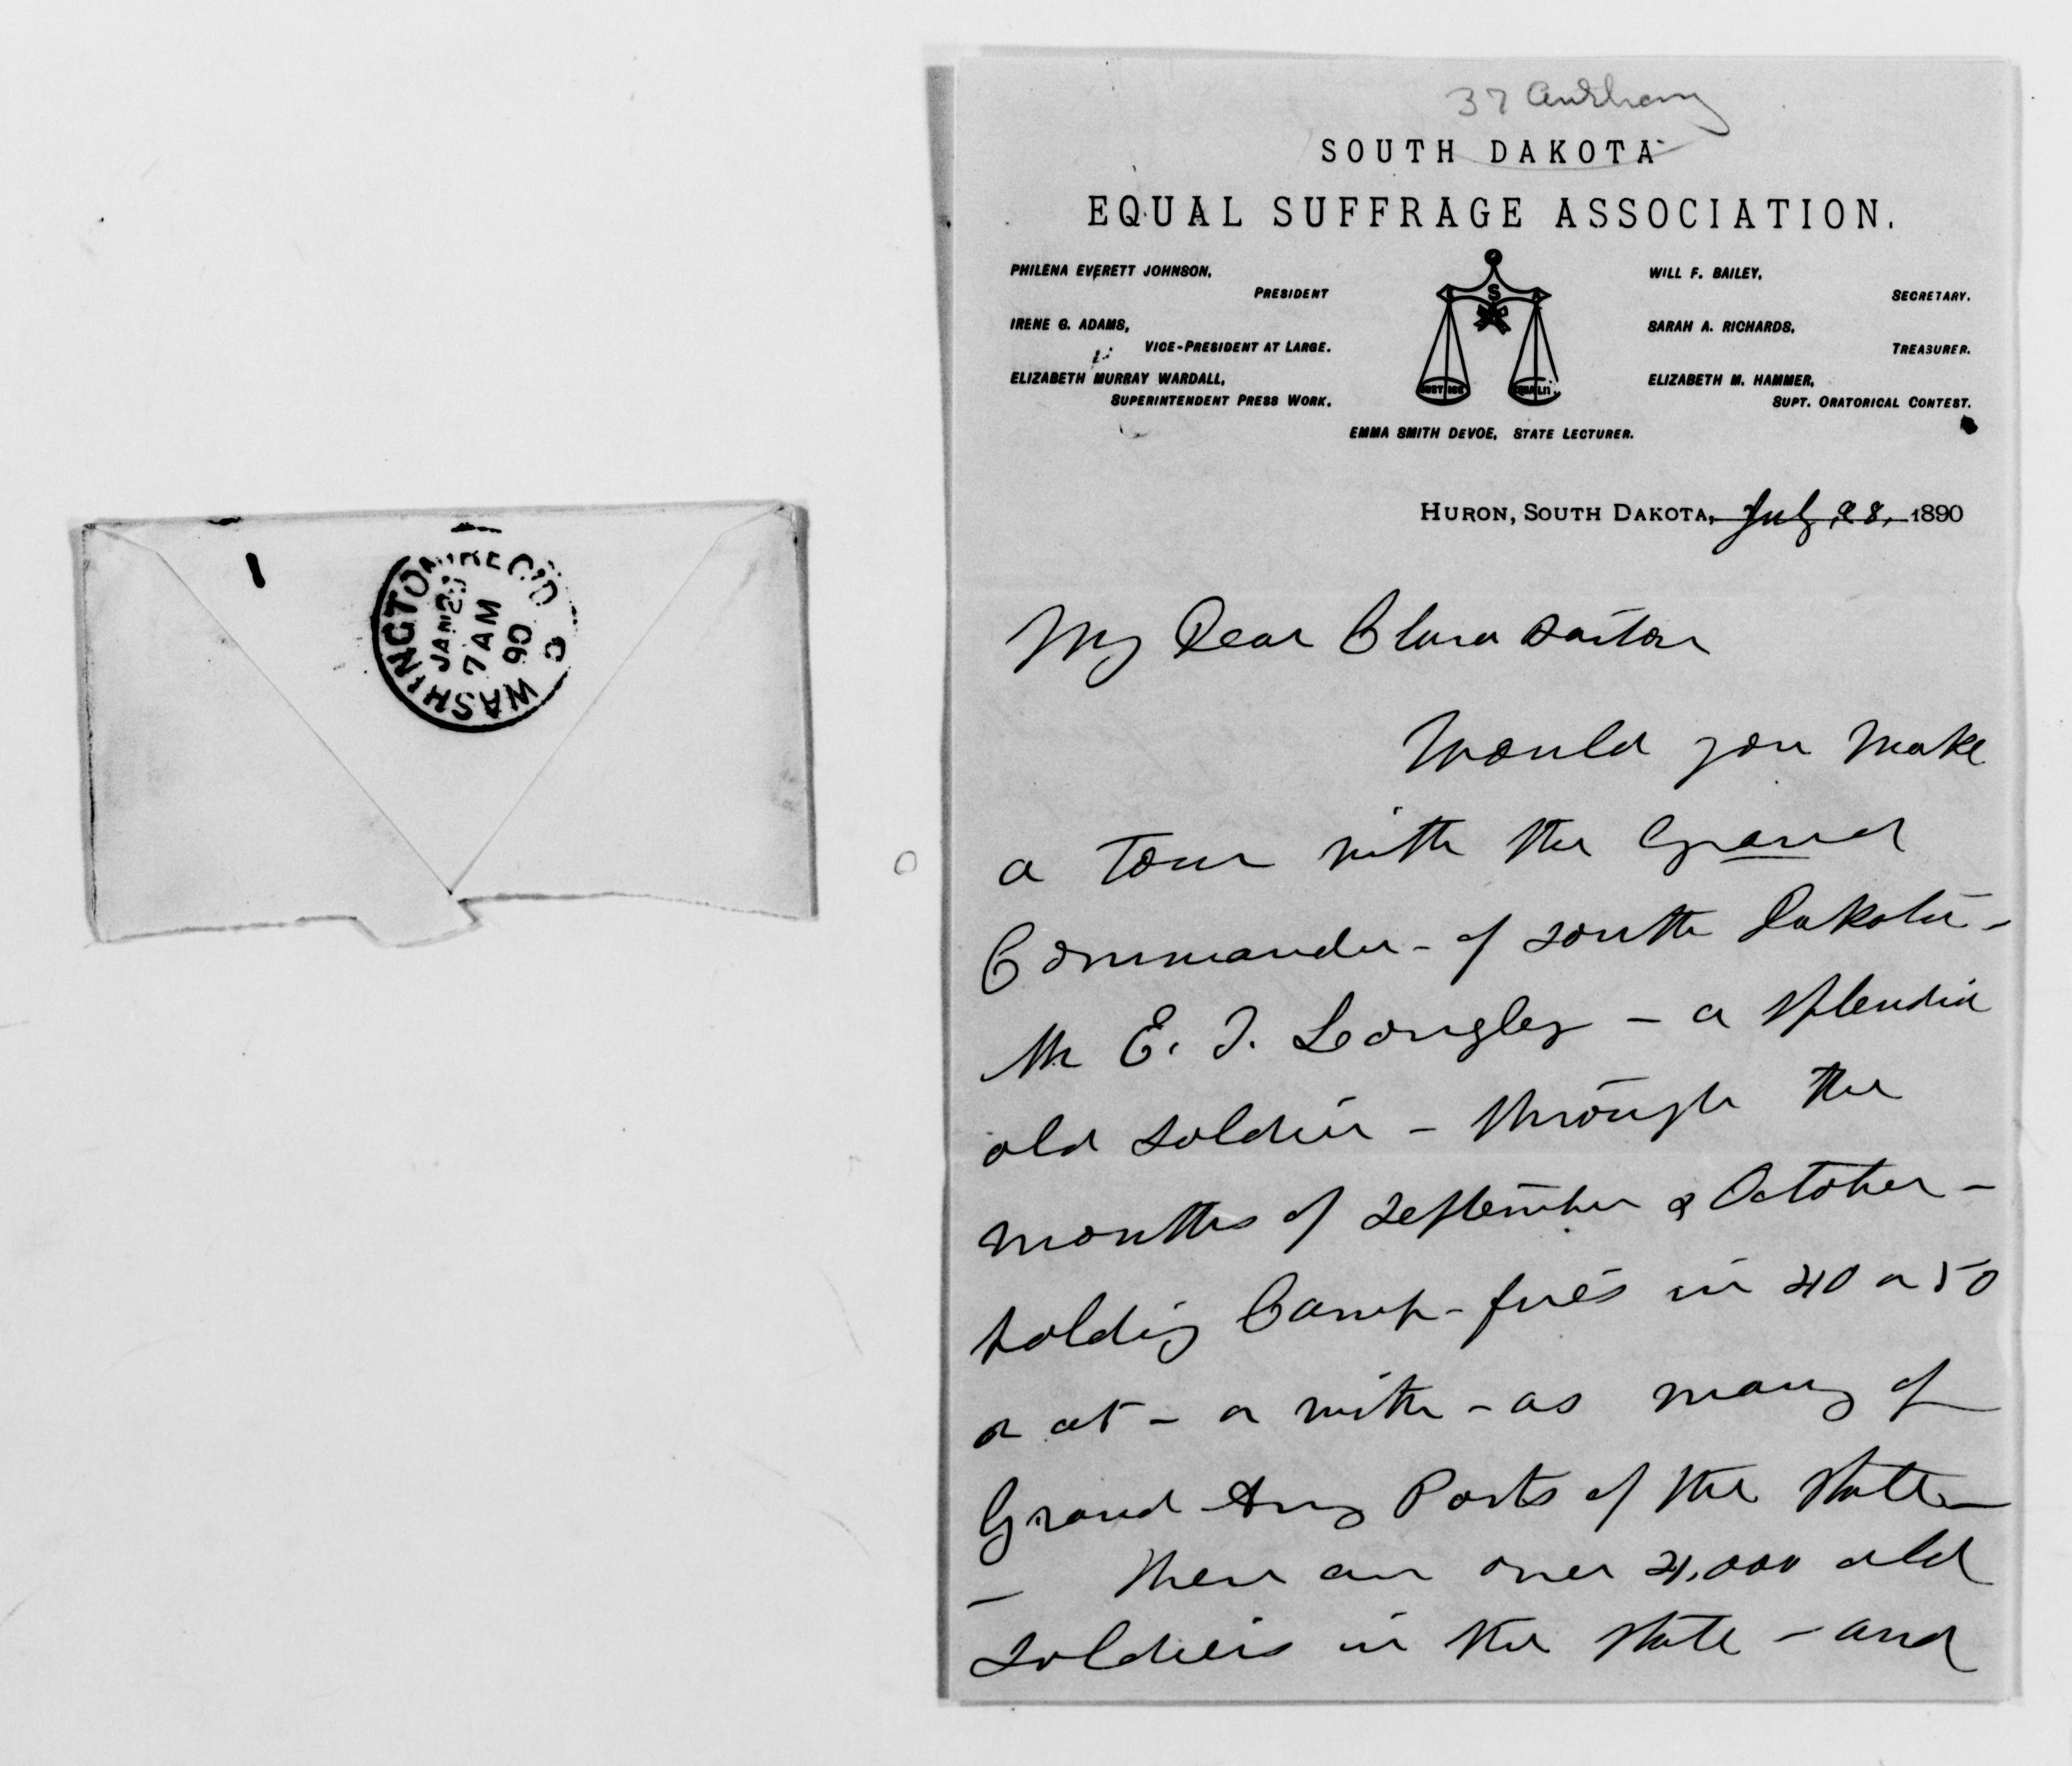 WASHINGTON, REC'D. D C
JAN 2
7 AM
90
37 Anthony
SOUTH DAKOTA
EQUAL SUFFRAGE ASSOCIATION.
PHILENA EVERETT JOHNSON,
PRESIDENT
IRENE G. ADAMS,
VICE-PRESIDENT AT LARGE.
ELIZABETH MURRAY WARDALL,
SUPERINTENDENT PRESS WORK.
S
JUSTICE
WILL F. BAILEY,
SECRETARY.
SARAH A. RICHARDS,
TREASURER.
ELIZABETH M. HAMMER,
SUPT. ORATORICAL CONTEST.
EMMA SMITH DEVOE, STATE LECTURER.
HURON, SOUTH DAKOTA, July 28, 1890
My Dear Clara Barton
Would you make
a tour with the Grand
Commander - of South Dakota -
Mr E. T. Langley - a splendid
old soldier - through the
months of September & October -
holding Camp-fires in 40 or 50
or at - or with - as many of
Grand Army Posts of the State
- There are over 4,000 old
soldiers in the State - and